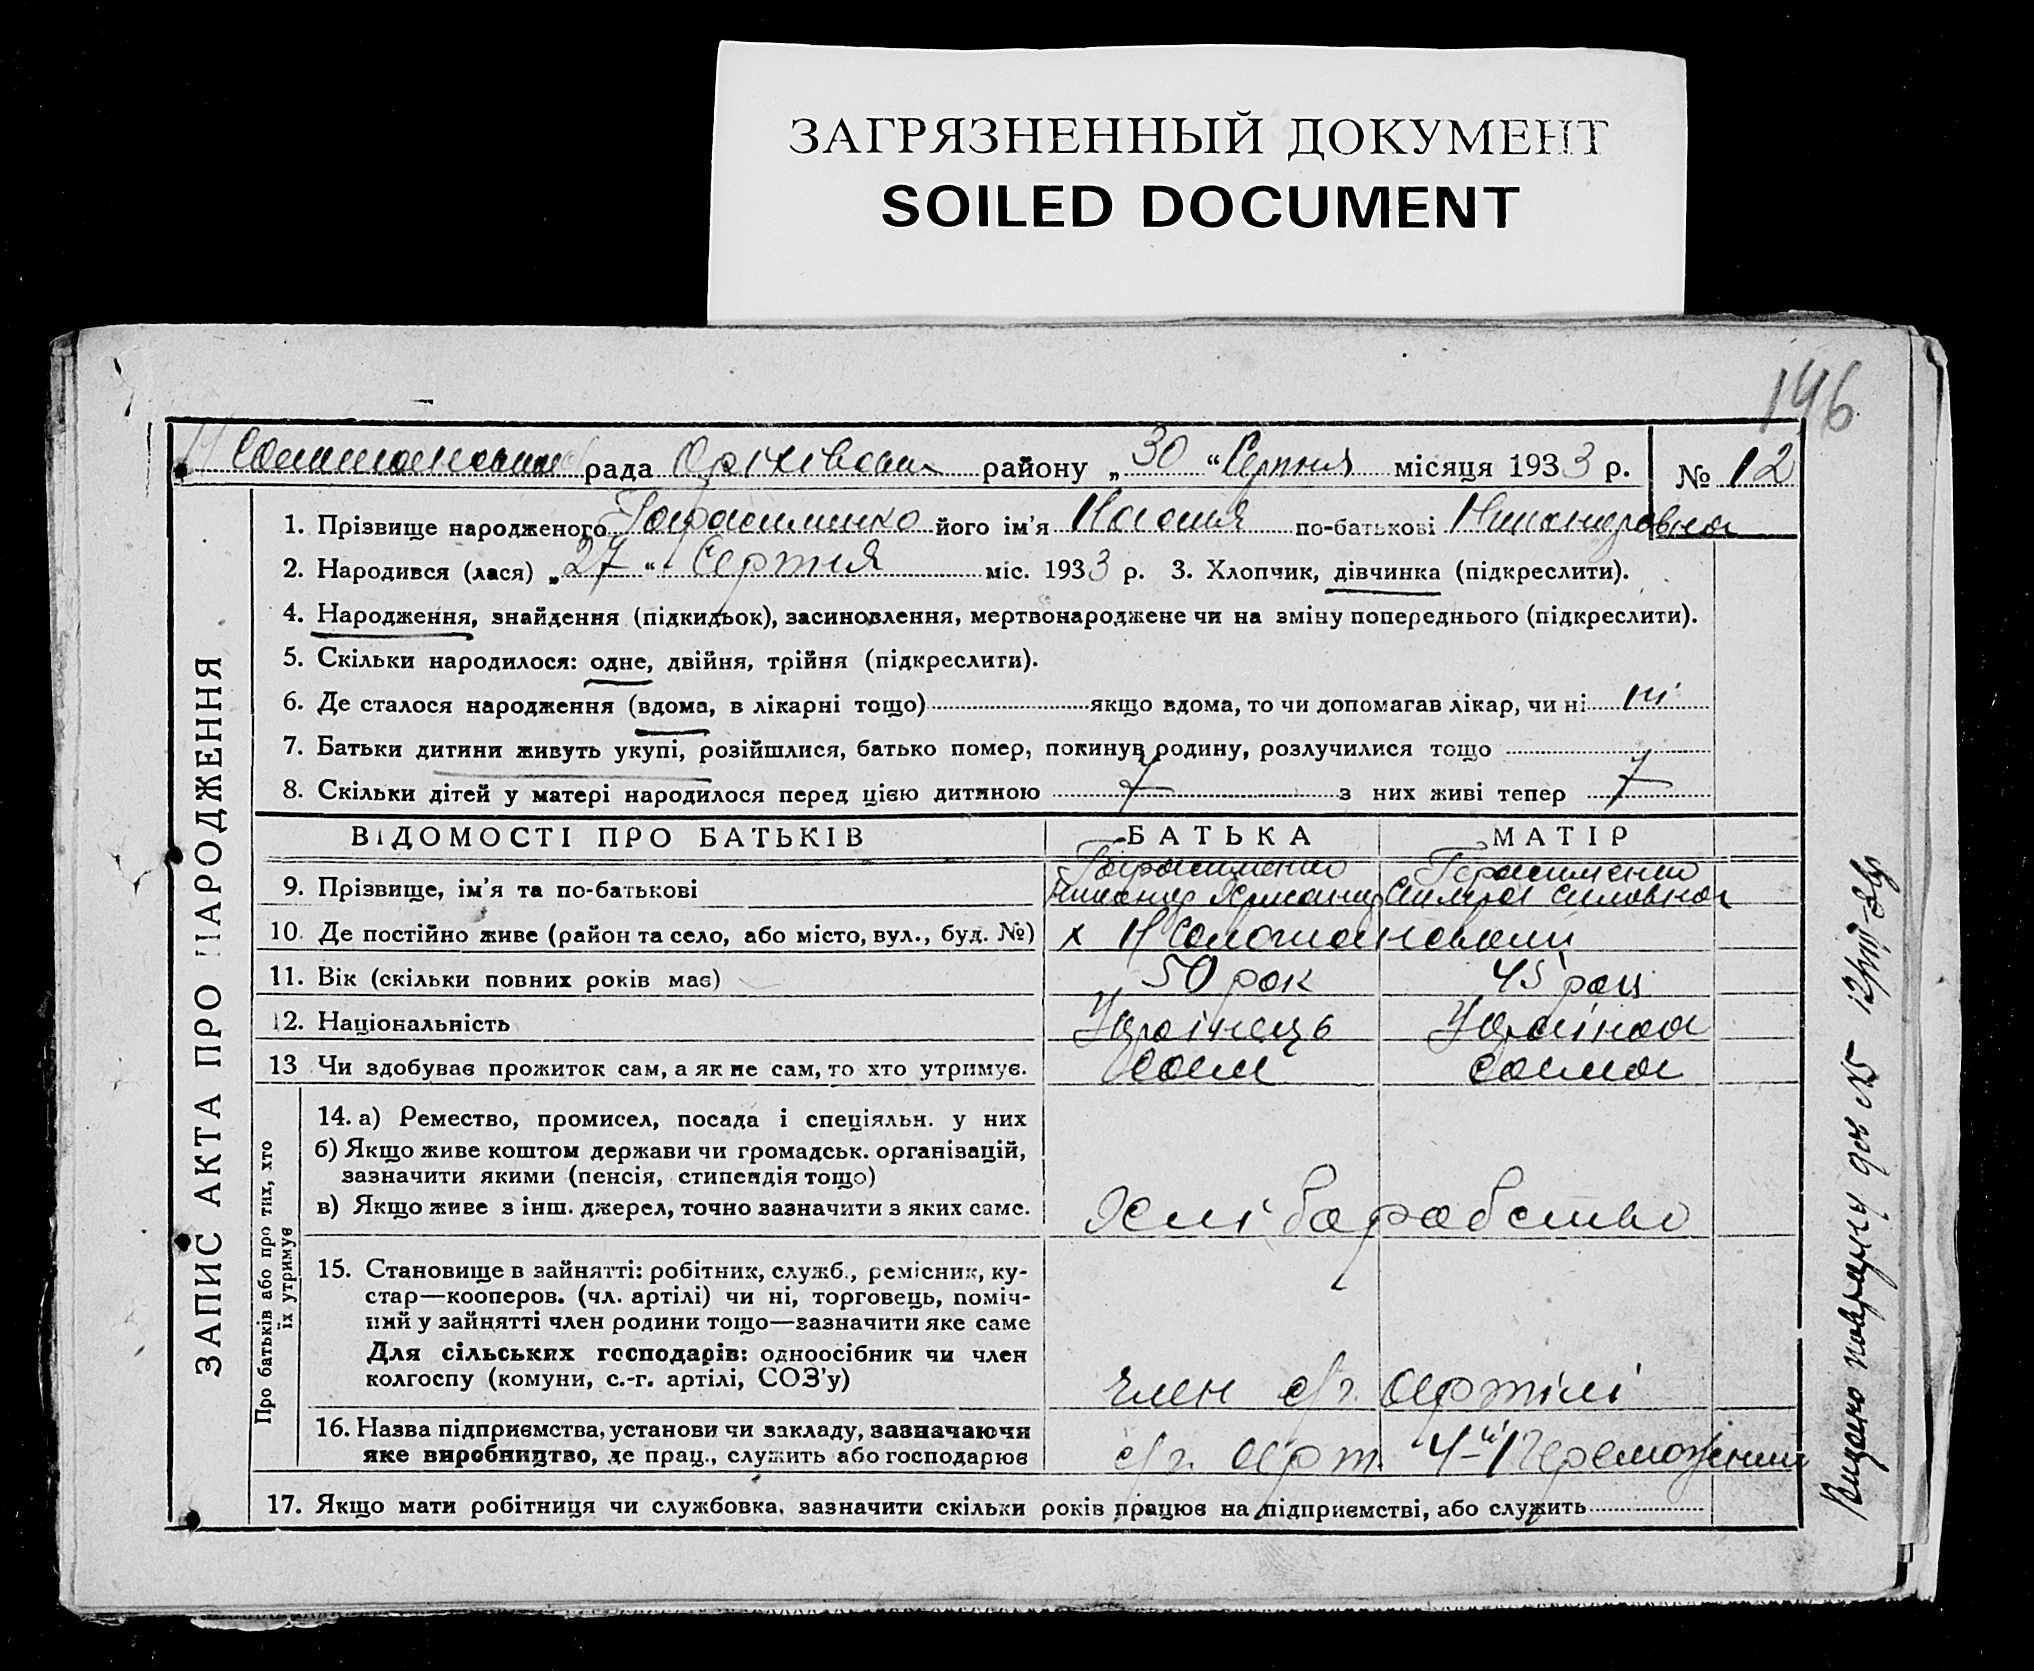 ЗАГРЯЗНЕННЫЙ ДОКУМЕНТ
SOILED DOCUMENT
146
рада Оріхівськ району „30“ Серпня місяця 1933 р. № 12
ЗАПИС АКТА ПРО НАРОДЖЕННЯ
1. Прізвище народженого Гарасименко його ім’я по-батькові Никандровна
2. Народився (лася) „27“ Серпня міс. 1933 р. 3. Хлопчик, дівчинка (підкреслити).
4. Народження, знайдення (підкидьок), засиновлення, мертвонароджене чи на зміну попереднього (підкреслити).
5. Скільки народилося: одне, двійня, трійня (підкреслити).
6. Де сталося народження (вдома, в лікарні тощо) якщо вдома, то чи допомагав лікар, чи ні ні
7. Батьки дитини живуть укупі, розійшлися, батько помер, покинув родину, розлучилися тощо
8. Скільки дітей у матері народилося перед цією дитиною 7 з них живі тепер 7
ВІДОМОСТІ ПРО БАТЬКІВ БАТЬКА МАТІР
Гарасименко Герасименко
9. Прізвище, ім’я та по-батькові Никандр Силовна
10. Де постійно живе (район та село, або місто, вул., буд. №) х
11. Вік (скільки повних років має) 50 рок 45 роц
12. Національність Украінець Украінка
13 Чи здобуває прожиток сам, а як не сам, то хто утримує. Сам Сама
Про батьків або про тих, хто
їх утримує
14. а) Ремество, промисел, посада і спеціяльн. у них
б) Якщо живе коштом держави чи громадськ. організацій,
зазначити якими (пенсія, стипендія тощо)
в) Якщо живе з інш. джерел, точно зазначити з яких саме. Хлібарабство
15. Становище в зайнятті: робітник, служб., ремісник, ку-
стар—кооперов. (чл. артілі) чи ні, торговець, поміч-
ний у зайнятті член родини тощо—зазначити яке саме
Для сільських господарів: одноосібник чи член
колгоспу (комуни, с.-г. артілі, СОЗ’у) член с/г. артілі
16. Назва підприємства, установи чи закладу, зазначаючи
яке виробництво, де прац., служить або господарює с/г. арт.
17. Якщо мати робітниця чи службовка, зазначити скільки років працює на підприємстві, або служить
Видано